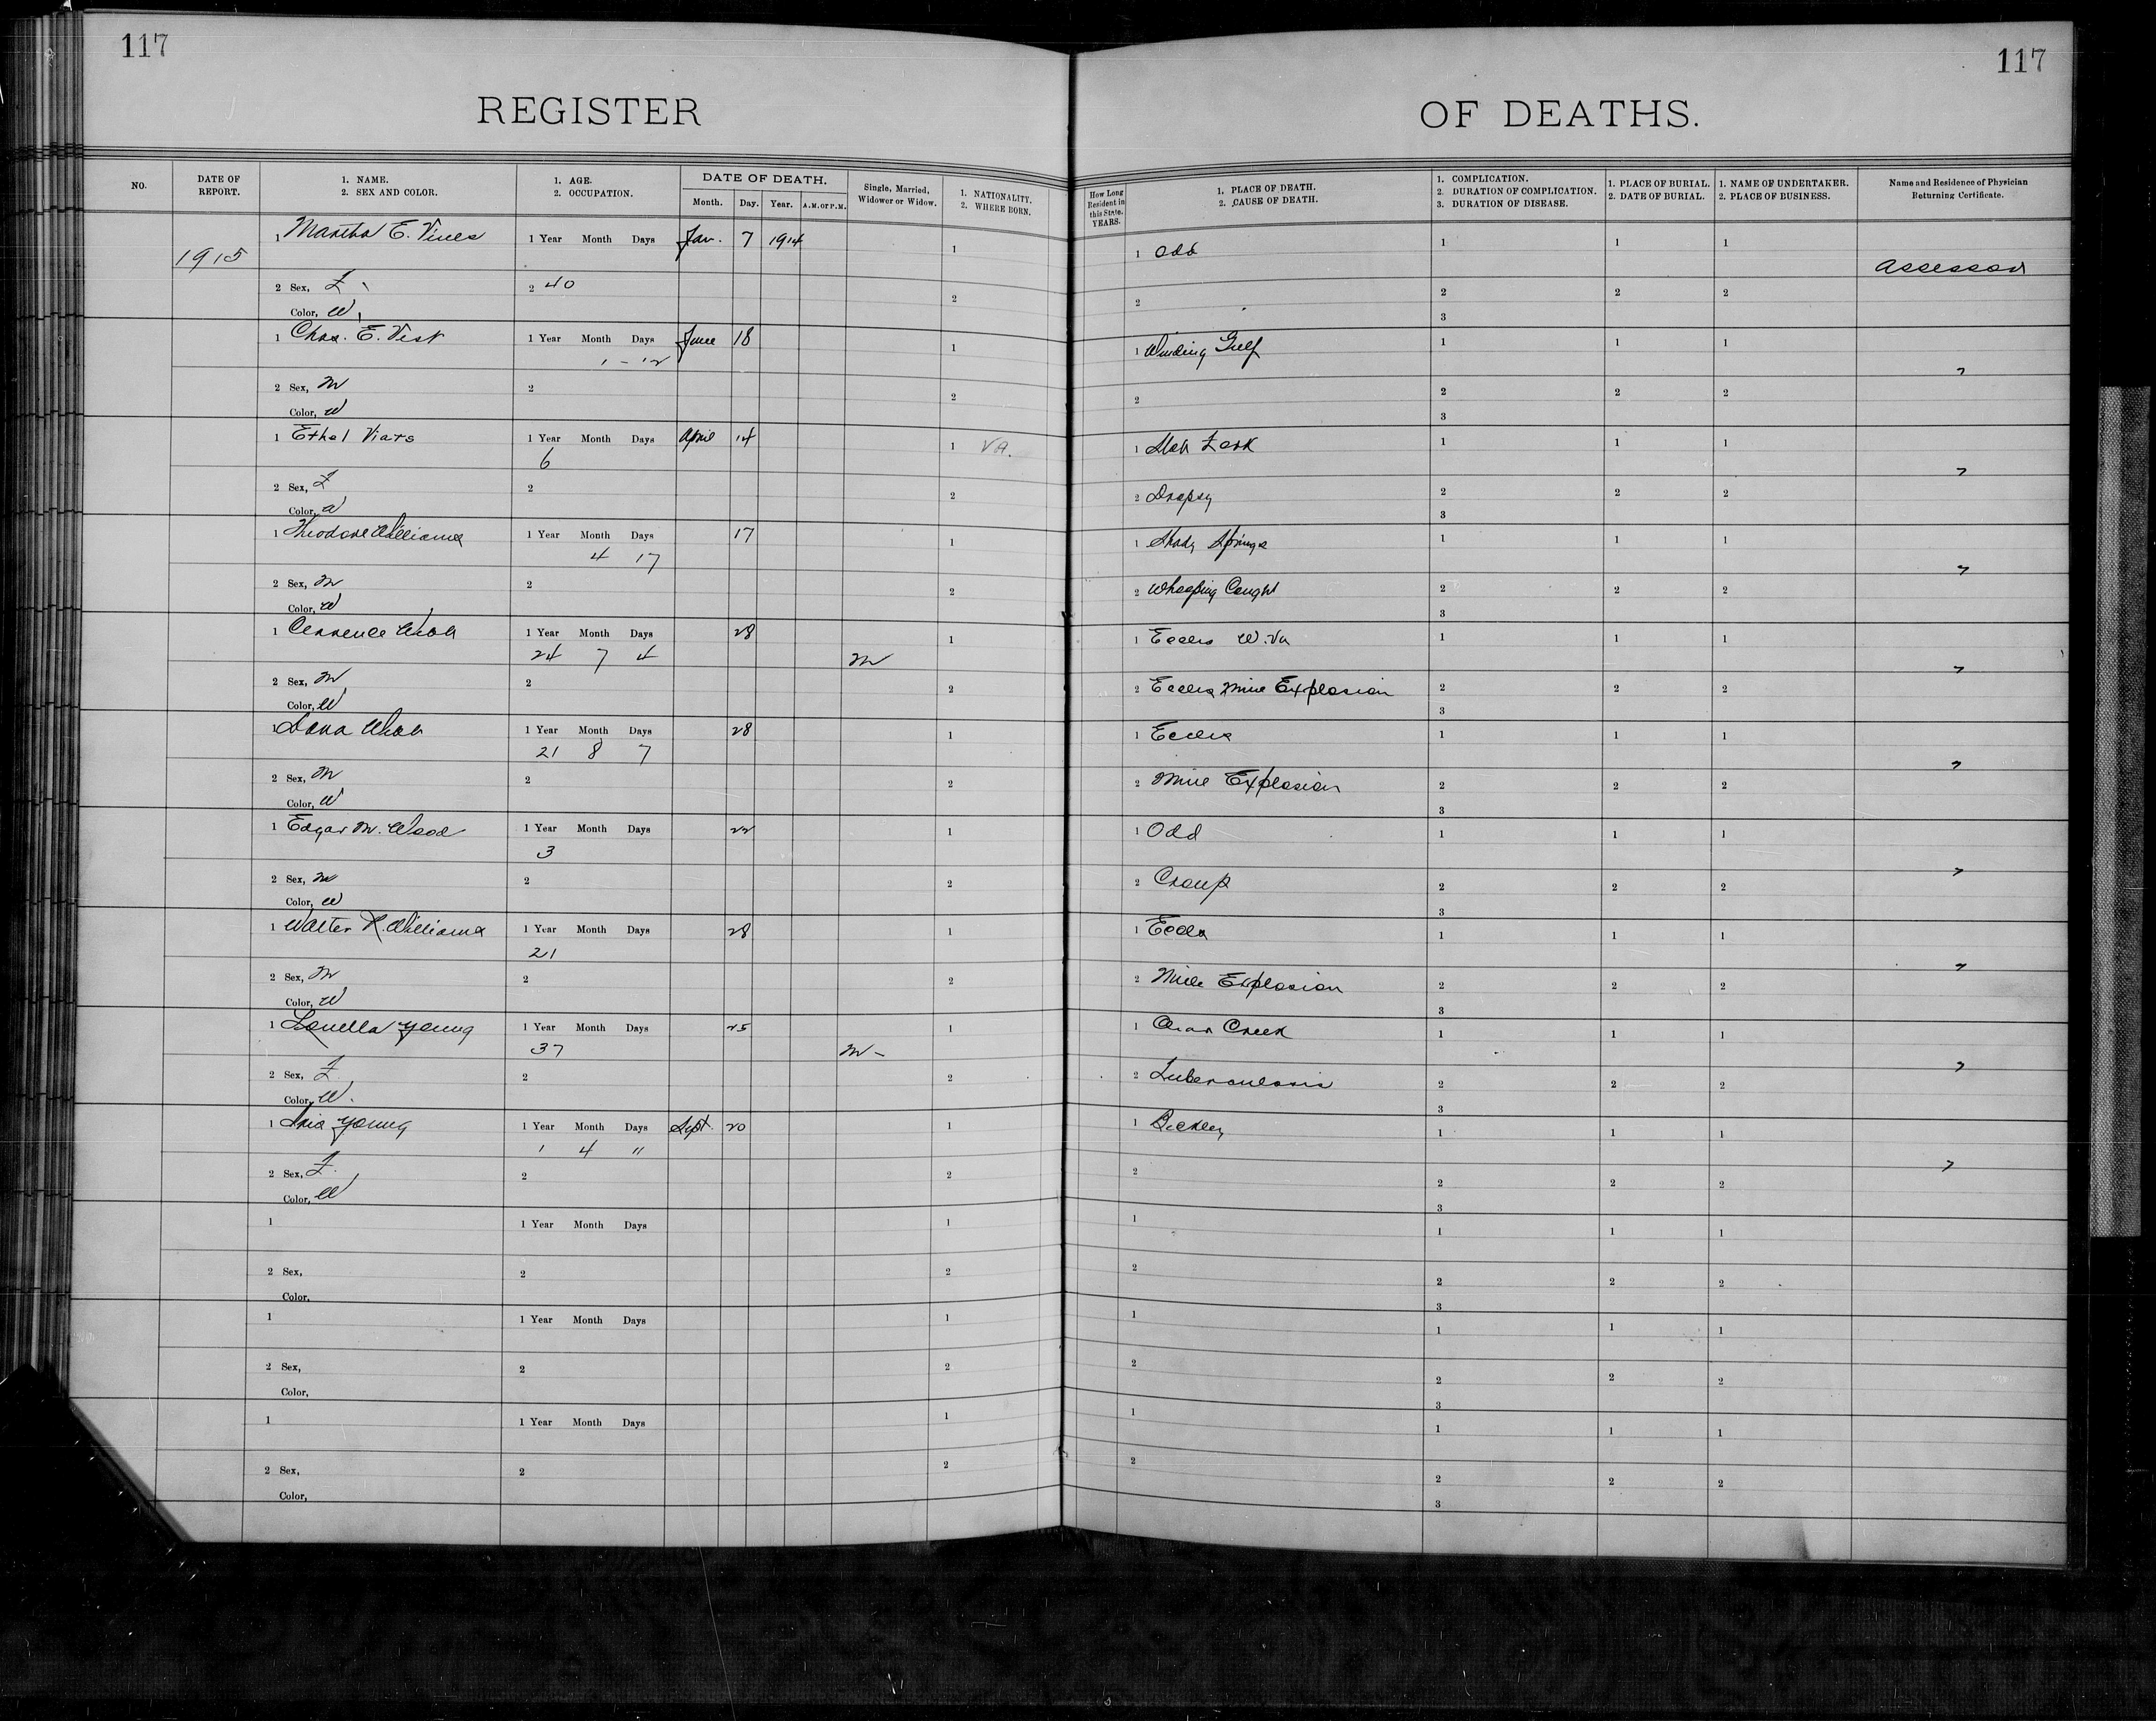 117
117
REGISTER OF DEATHS.
NO. DATE OF REPORT. 1. NAME. 2. SEX AND COLOR. 1. AGE. 2. OCCUPATION. DATE OF DEATH. Month. Day. Year. A.M. or P.M. Single, Married, Widower or Widow. 1. NATIONALITY. 2. WHERE BORN. How Long Resident in this State. YEARS. 1. PLACE OF DEATH. 2. CAUSE OF DEATH. 1. COMPLICATION. 2. DURATION OF COMPLICATION. 3. DURATION OF DISEASE. 1. PLACE OF BURIAL. 2. DATE OF BURIAL. 1. NAME OF UNDERTAKER. 2. PLACE OF BUSINESS. Name and Residence of Physician Returning Certificate.
1 Martha E. Vines 1 Year Month Days Jan. 7 1914 1 1 Odd 1 1 1
1915 Assessor
2 Sex, F 2 40 2 2 2 2 2
Color, W. 3
1 Chas. E. Vest 1 Year Month Days June 18 1 1 Winding Gulf 1 1 1
1 - 12 "
2 Sex, M 2 2 2 2 2 2
Color, W 3
1 Ethel Viars 1 Year Month Days April 14 1 VA. 1 Slab Fork 1 1 1
6 "
2 Sex, F 2 2 2 Dropsy 2 2 2
Color, W 3
1 Theodore Williams 1 Year Month Days 17 1 1 Shady Springs 1 1 1
4 17 "
2 Sex, M 2 2 2 Whooping Cought 2 2 2
Color, W 3
1 Clarence 1 Year Month Days 28 1 1 Eccles W.Va 1 1 1
24 7 4 M "
2 Sex, M 2 2 2 Eccles Mine Explosion 2 2 2
Color, W 3
1 1 Year Month Days 28 1 1 Eccles 1 1 1
21 8 7 "
2 Sex, M 2 2 2 Mine Explosion 2 2 2
Color, W 3
1 Edgar M. Wood 1 Year Month Days 22 1 1 Odd 1 1 1
3 "
2 Sex, M 2 2 2 Croup 2 2 2
Color, W 3
1 Walter R. Williams 1 Year Month Days 28 1 1 Eccles 1 1 1
21 "
2 Sex, M 2 2 2 Mine Explosion 2 2 2
Color, W 3
1 Louella Young 1 Year Month Days 25 1 1 Clear Creek 1 1 1
37 M - "
2 Sex, F 2 2 2 Tuberculosis 2 2 2
Color, W. 3
1 Young 1 Year Month Days Sept. 20 1 1 Beckley 1 1 1
1 4 " "
2 Sex, F. 2 2 2 2 2 2
Color, W 3
1 1 Year Month Days 1 1 1 1 1
2 Sex, 2 2 2 2 2 2
Color, 3
1 1 Year Month Days 1 1 1 1 1
2 Sex, 2 2 2 2 2 2
Color, 3
1 1 Year Month Days 1 1 1 1 1
2 Sex, 2 2 2 2 2 2
Color, 3